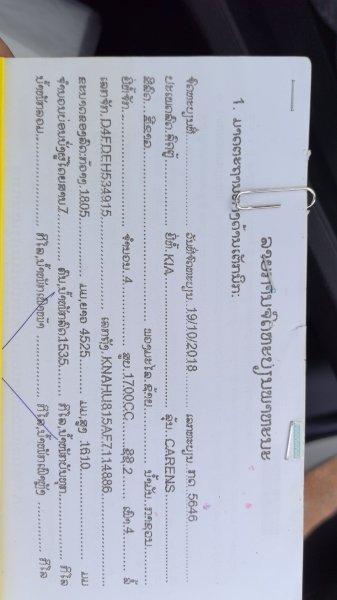 ລາຍການຈົດທະບຽນພາຫະນະ
1. ມາດຕະຖານທາງດ້ານເຕັກນິກ:
ຈົດທະບຽນທີ່................ວັນທີຈົດທະບຽນ. 19/10/2018........ເລກທະບຽນ. ກດ 5646
ປະເພດລົດ.ລົດຕູ້............ຍີ່ຫໍ້.KIA................ລຸ້ນ. CARENS
ສີລົດ...ສີຂາວ...............ພວງມະໄລ.ຊ້າຍ...............ນ້ຳມັນ. ກາຊວນ.
ຍີ່ຫໍ້ຈັກ...............ຈຳນວນ. 4.........ສູບ.1700CC....ຊຊ.2.....ເພົາ.4.....ລໍ້
ເລກຈັກ.D4FDEH534915...............ເລກຖັງ. KNAHU815AF7114886
ຂະໜາດຂອງລົດ:ກວ້າງ.1805..........ມມ,ຍາວ 4525......ມມ,ສູງ .1610.......ມມ
ຈຳນວນບ່ອນນັ່ງຜູ້ໂດຍສານ7......ຄົນ,ນ້ຳໜັກລົດ1535.......ກິໂລ,ນ້ຳໜັກບັນທຸກ........ກິໂລ
ນ້ຳໜັກລວມ...............ກິໂລ,ນ້ຳໜັກເພົາໜ້າ ............ກິໂລ,ນ້ຳໜັກເພົາຫຼັງ ............ກິໂລ